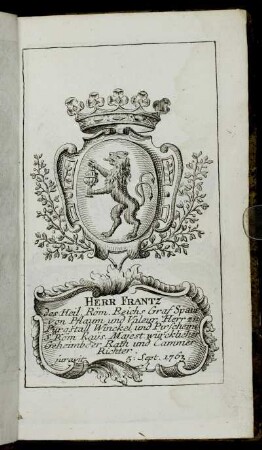 HERR FRANTZ
Des Heil. Röm. Reichs Graf Spaur
von Pflaum und Valeur, Herr zu
Burgstall, Winckel und Pirscheim
Röm. Kays. Majest. würcklicher
Geheimbder Rath und Cammer
Richter.
juravit 5. Sept. 1763